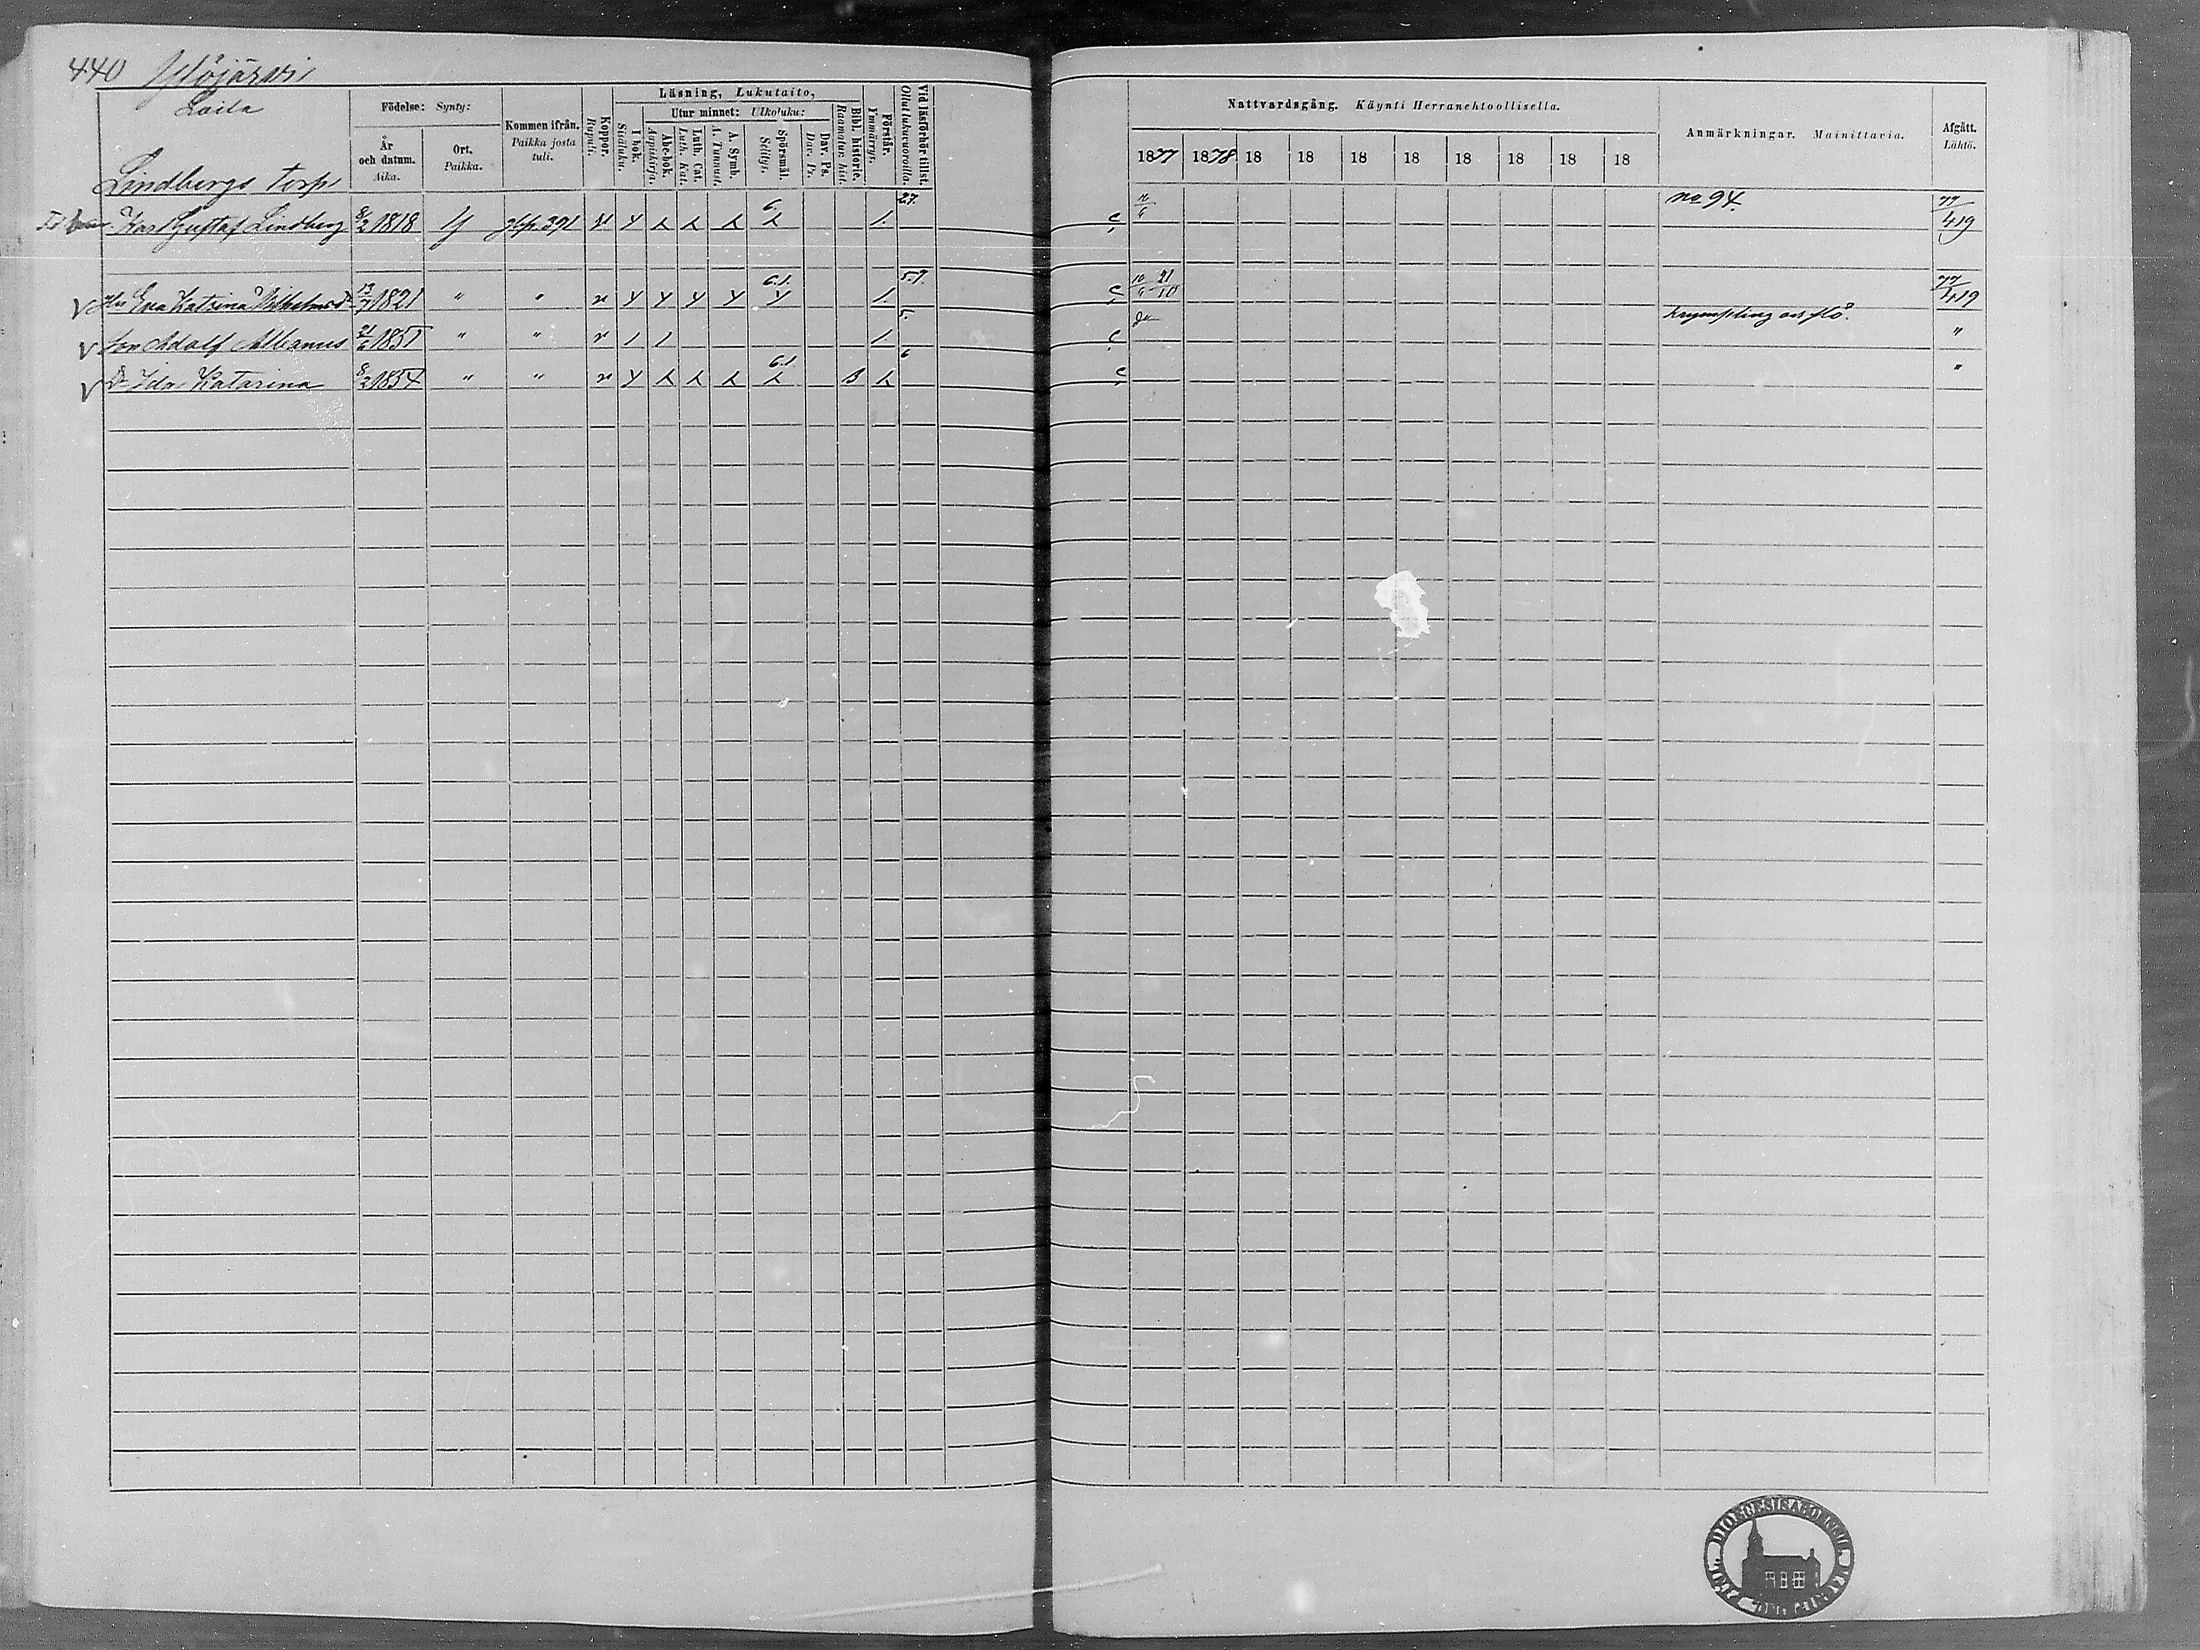 440 Ylöjärvi
Laila
Lindbergs torp
Läsning, Lukutaito,
Födelse: Synty:
Utur minnet: Ulkoluku:
År och datum. Aika.
Ort. Paikka.
Kommen ifrån. Paikka josta tuli.
Koppor. Rupuli.
I bok. Sisäluku.
Abc-bok. Aapiskirja.
Luth. Cat. Luth. Kat.
A. Symb. A. Tunnust.
Spörsmål Selitys.
Dav. Ps. Dav. Ps.
Bibl. historie. Raamatun hist.
Förstår. Ymmärrys.
Vid läsförhör tillst. Ollut lukuvuoroilla.
Nattvardsgång. Käynti Herranehtoollisella.
1877 1878 18 18 18 18 18 18 18 18
Anmärkningar. Mainittavia.
Afgått. Lähtö.
Karl Gustaf Lindberg 8/2 1818 Y 391 v 6. 1. 27. no 94. 77/419
Hu Eva Katrina Wilhelmsd. 13/7 1821 " " v 6.1. 1. 5.7. 21/10 77/419
Son Adolf Albanus 21/6 1851 " " v 1 1 1. 5. Krympling "
D. Ida Katarina 8/2 1854 " " v 6.1. B 6 "